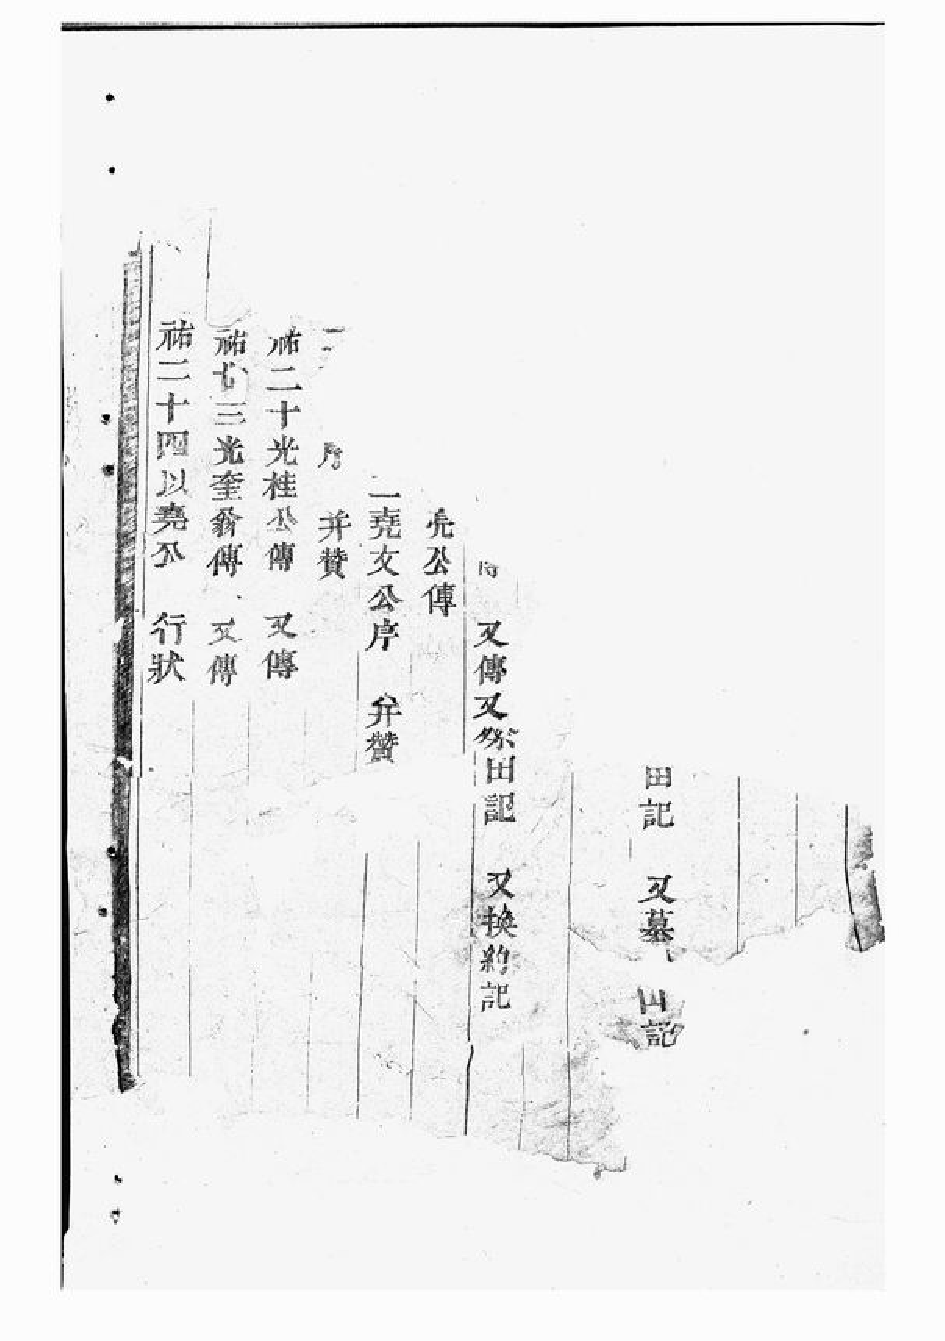 田記 又墓 山記
又傳又祭田記 又換約記
堯公傳
一堯文公序 并贊
序 并贊
祐二十光桂公傳 又傳
祐七三光奎翁傳 又傳
祐二十四以堯公 行狀